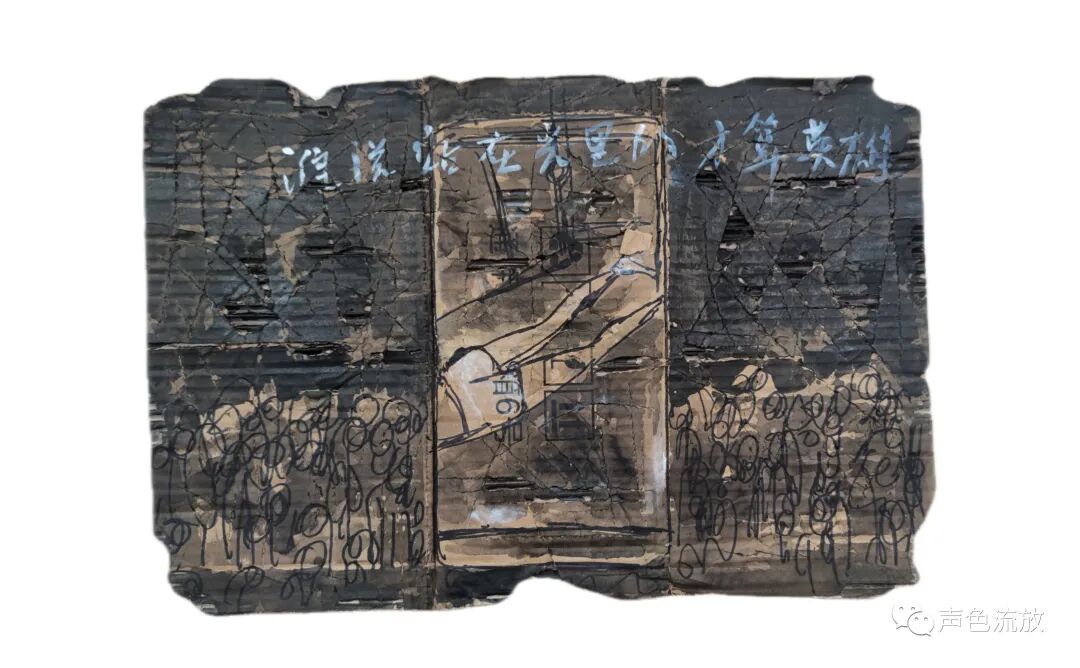 谁说站在光里的才算英雄
声色流放